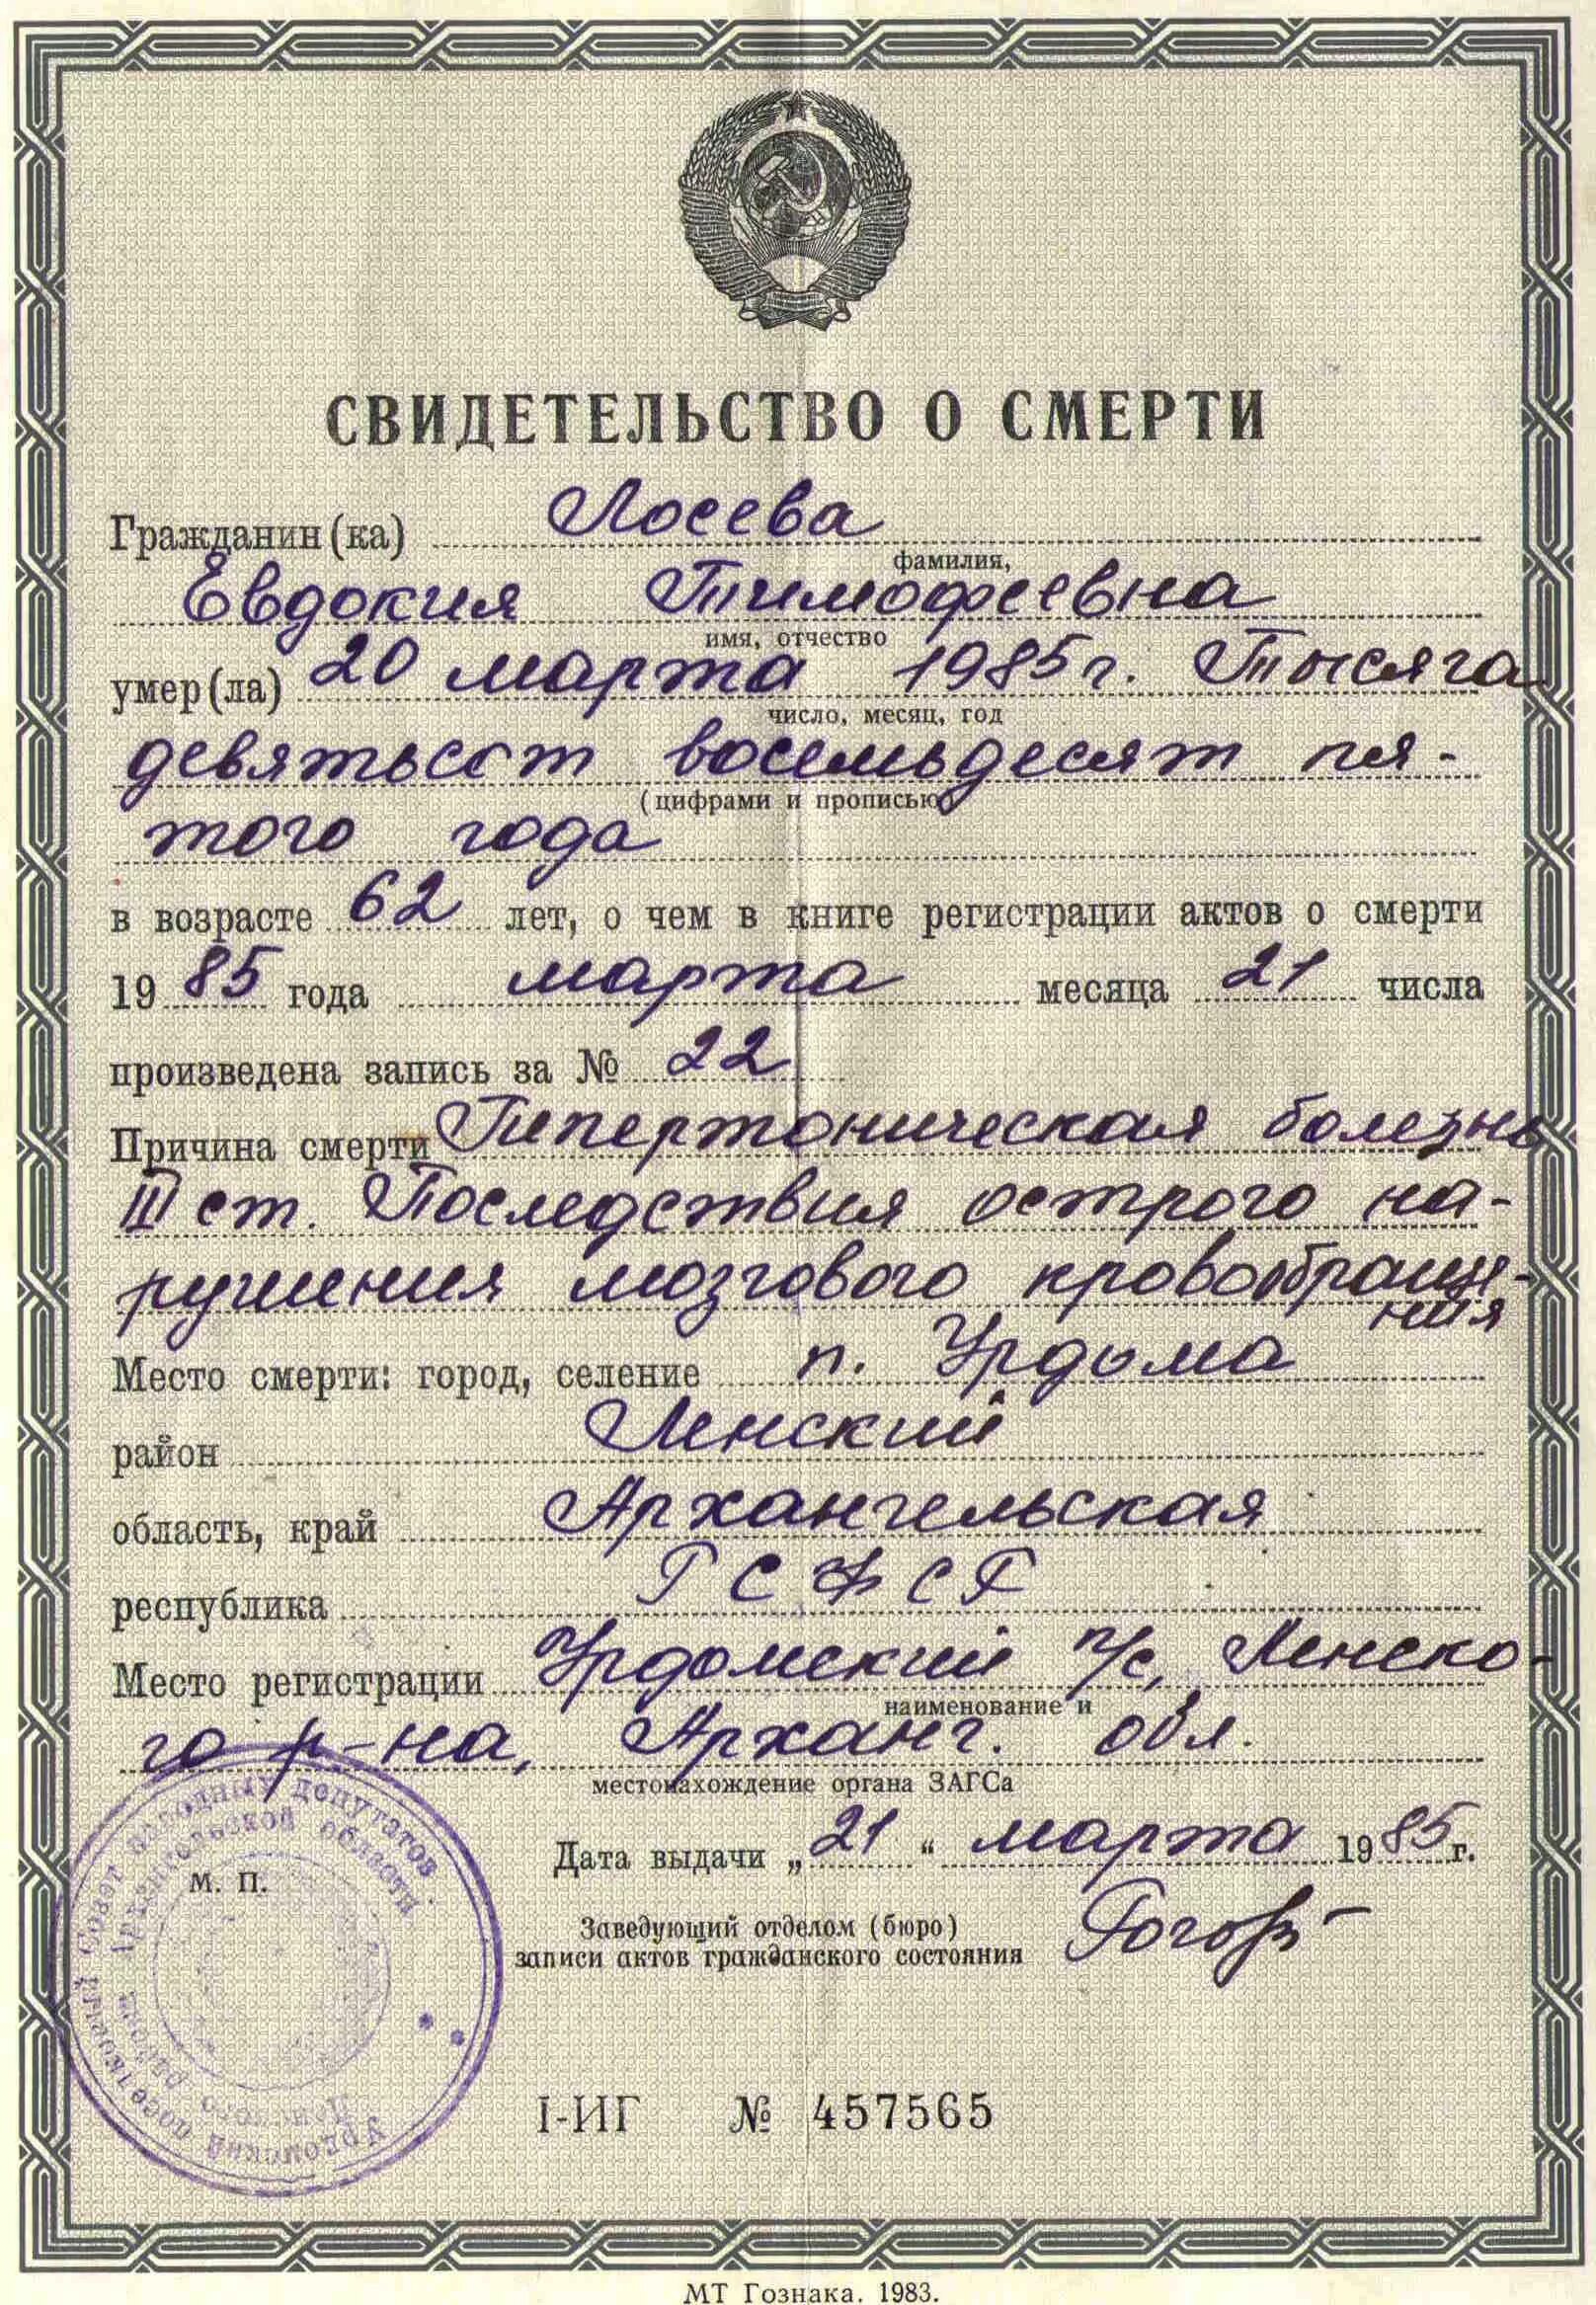 СВИДЕТЕЛЬСТВО О СМЕРТИ
Гражданин(ка) Лосева
фамилия,
Евдокия Тимофеевна
имя, отчество
умер(ла) 20 марта 1985 г. Тысяча
число, месяц, год
девятьсот восемьдесят пя-
(цифрами и прописью)
того года
в возрасте 62 лет, о чем в книге регистрации актов о смерти
19 85 года марта месяца 21 числа
произведена запись за № 22
Причина смерти Гипертоническая болезнь
III ст. Последствия острого на-
рушения мозгового кровообраще-
ния
Место смерти: город, селение п. Урдома
район Ленский
область, край Архангельская
республика РСФСР
Место регистрации Урдомский п/с, Ленско-
наименование и
го р-на, Арханг. обл.
местонахождение органа ЗАГСа
Дата выдачи „21“ марта 1985 г.
М. П.
Заведующий отделом (бюро)
записи актов гражданского состояния
Урдомский поселковый Совет народных депутатов
Ленского района Архангельской области
I-ИГ № 457565
МТ Гознака. 1983.